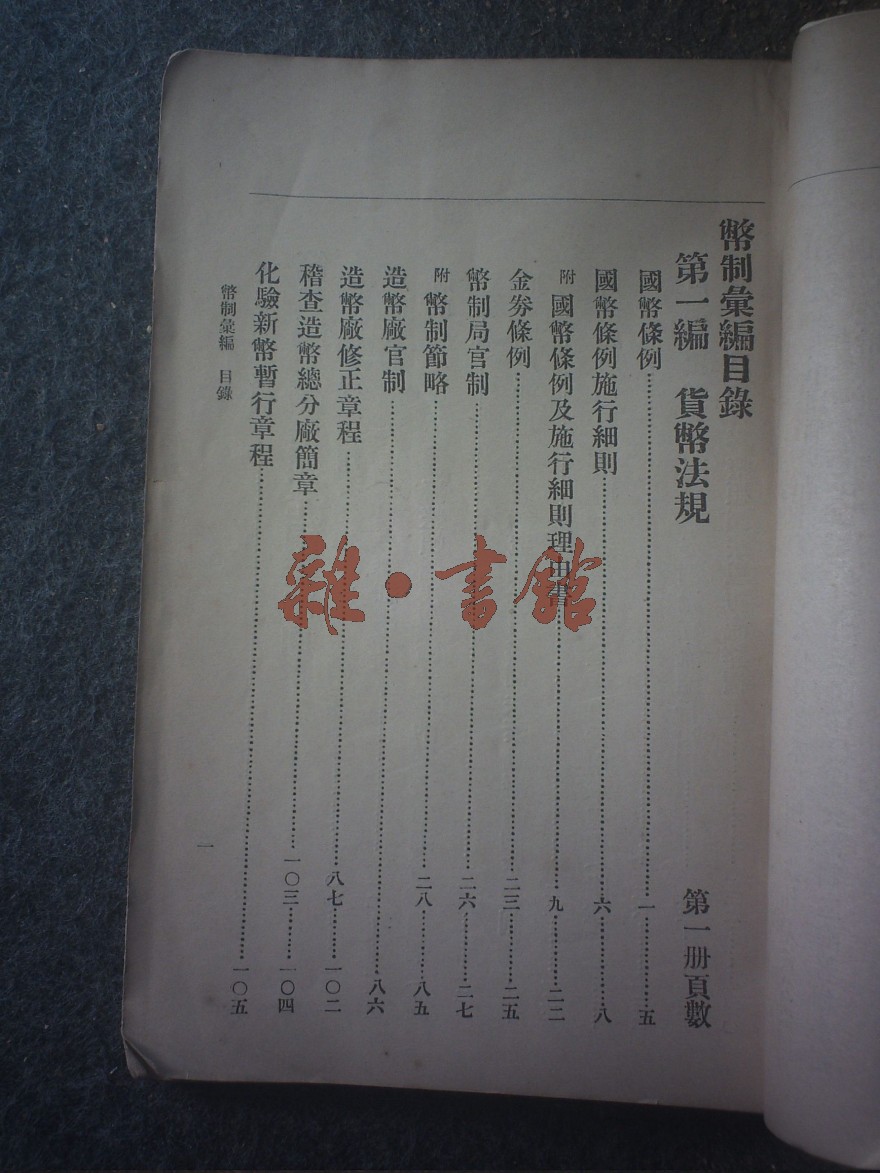 幣制彙編目錄
第一編 貨幣法規 第一册頁數
國幣條例……一……五
國幣條例施行細則……六……八
附 國幣條例及施行細則理由書……九……二二
金券條例……二三……二五
幣制局官制……二六……二七
附 幣制節略……二八……八五
造幣廠官制……八六
造幣廠修正章程……八七……一〇二
稽查造幣總分廠簡章……一〇三……一〇四
化驗新幣暫行章程……一〇五
幣制彙編 目錄 一
雜·書館